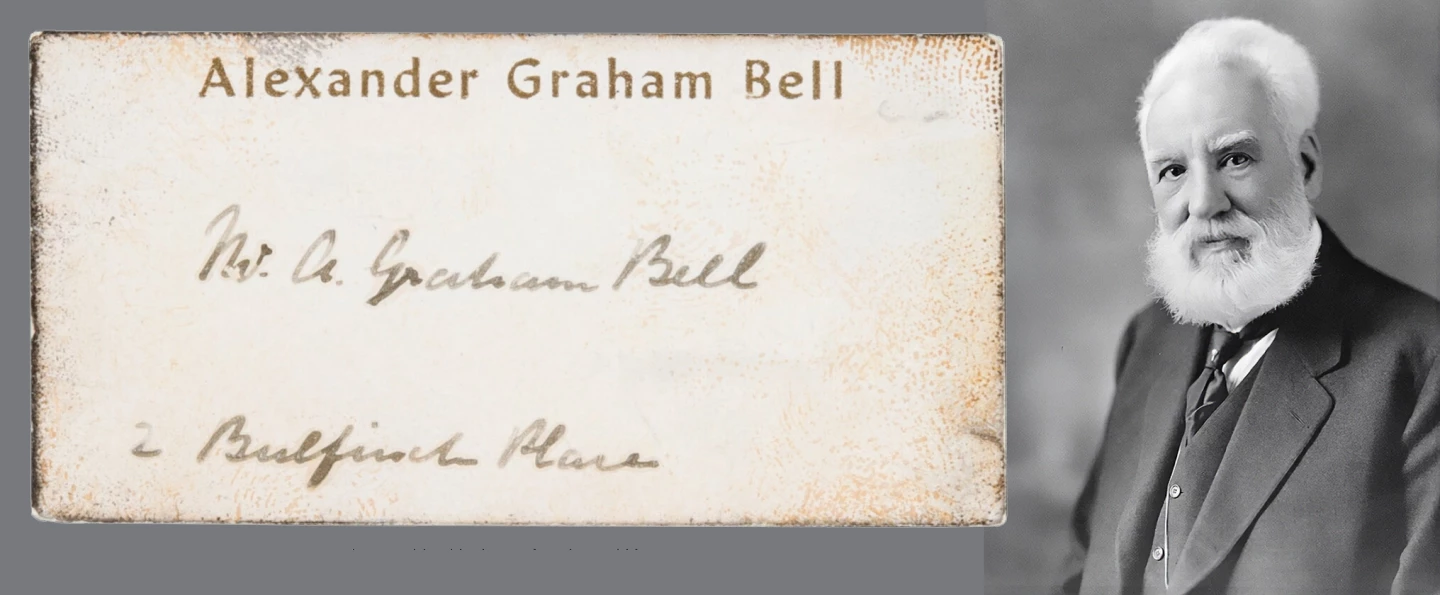 Alexander Graham Bell
Mr. A. Graham Bell
2 Bulfinch Place